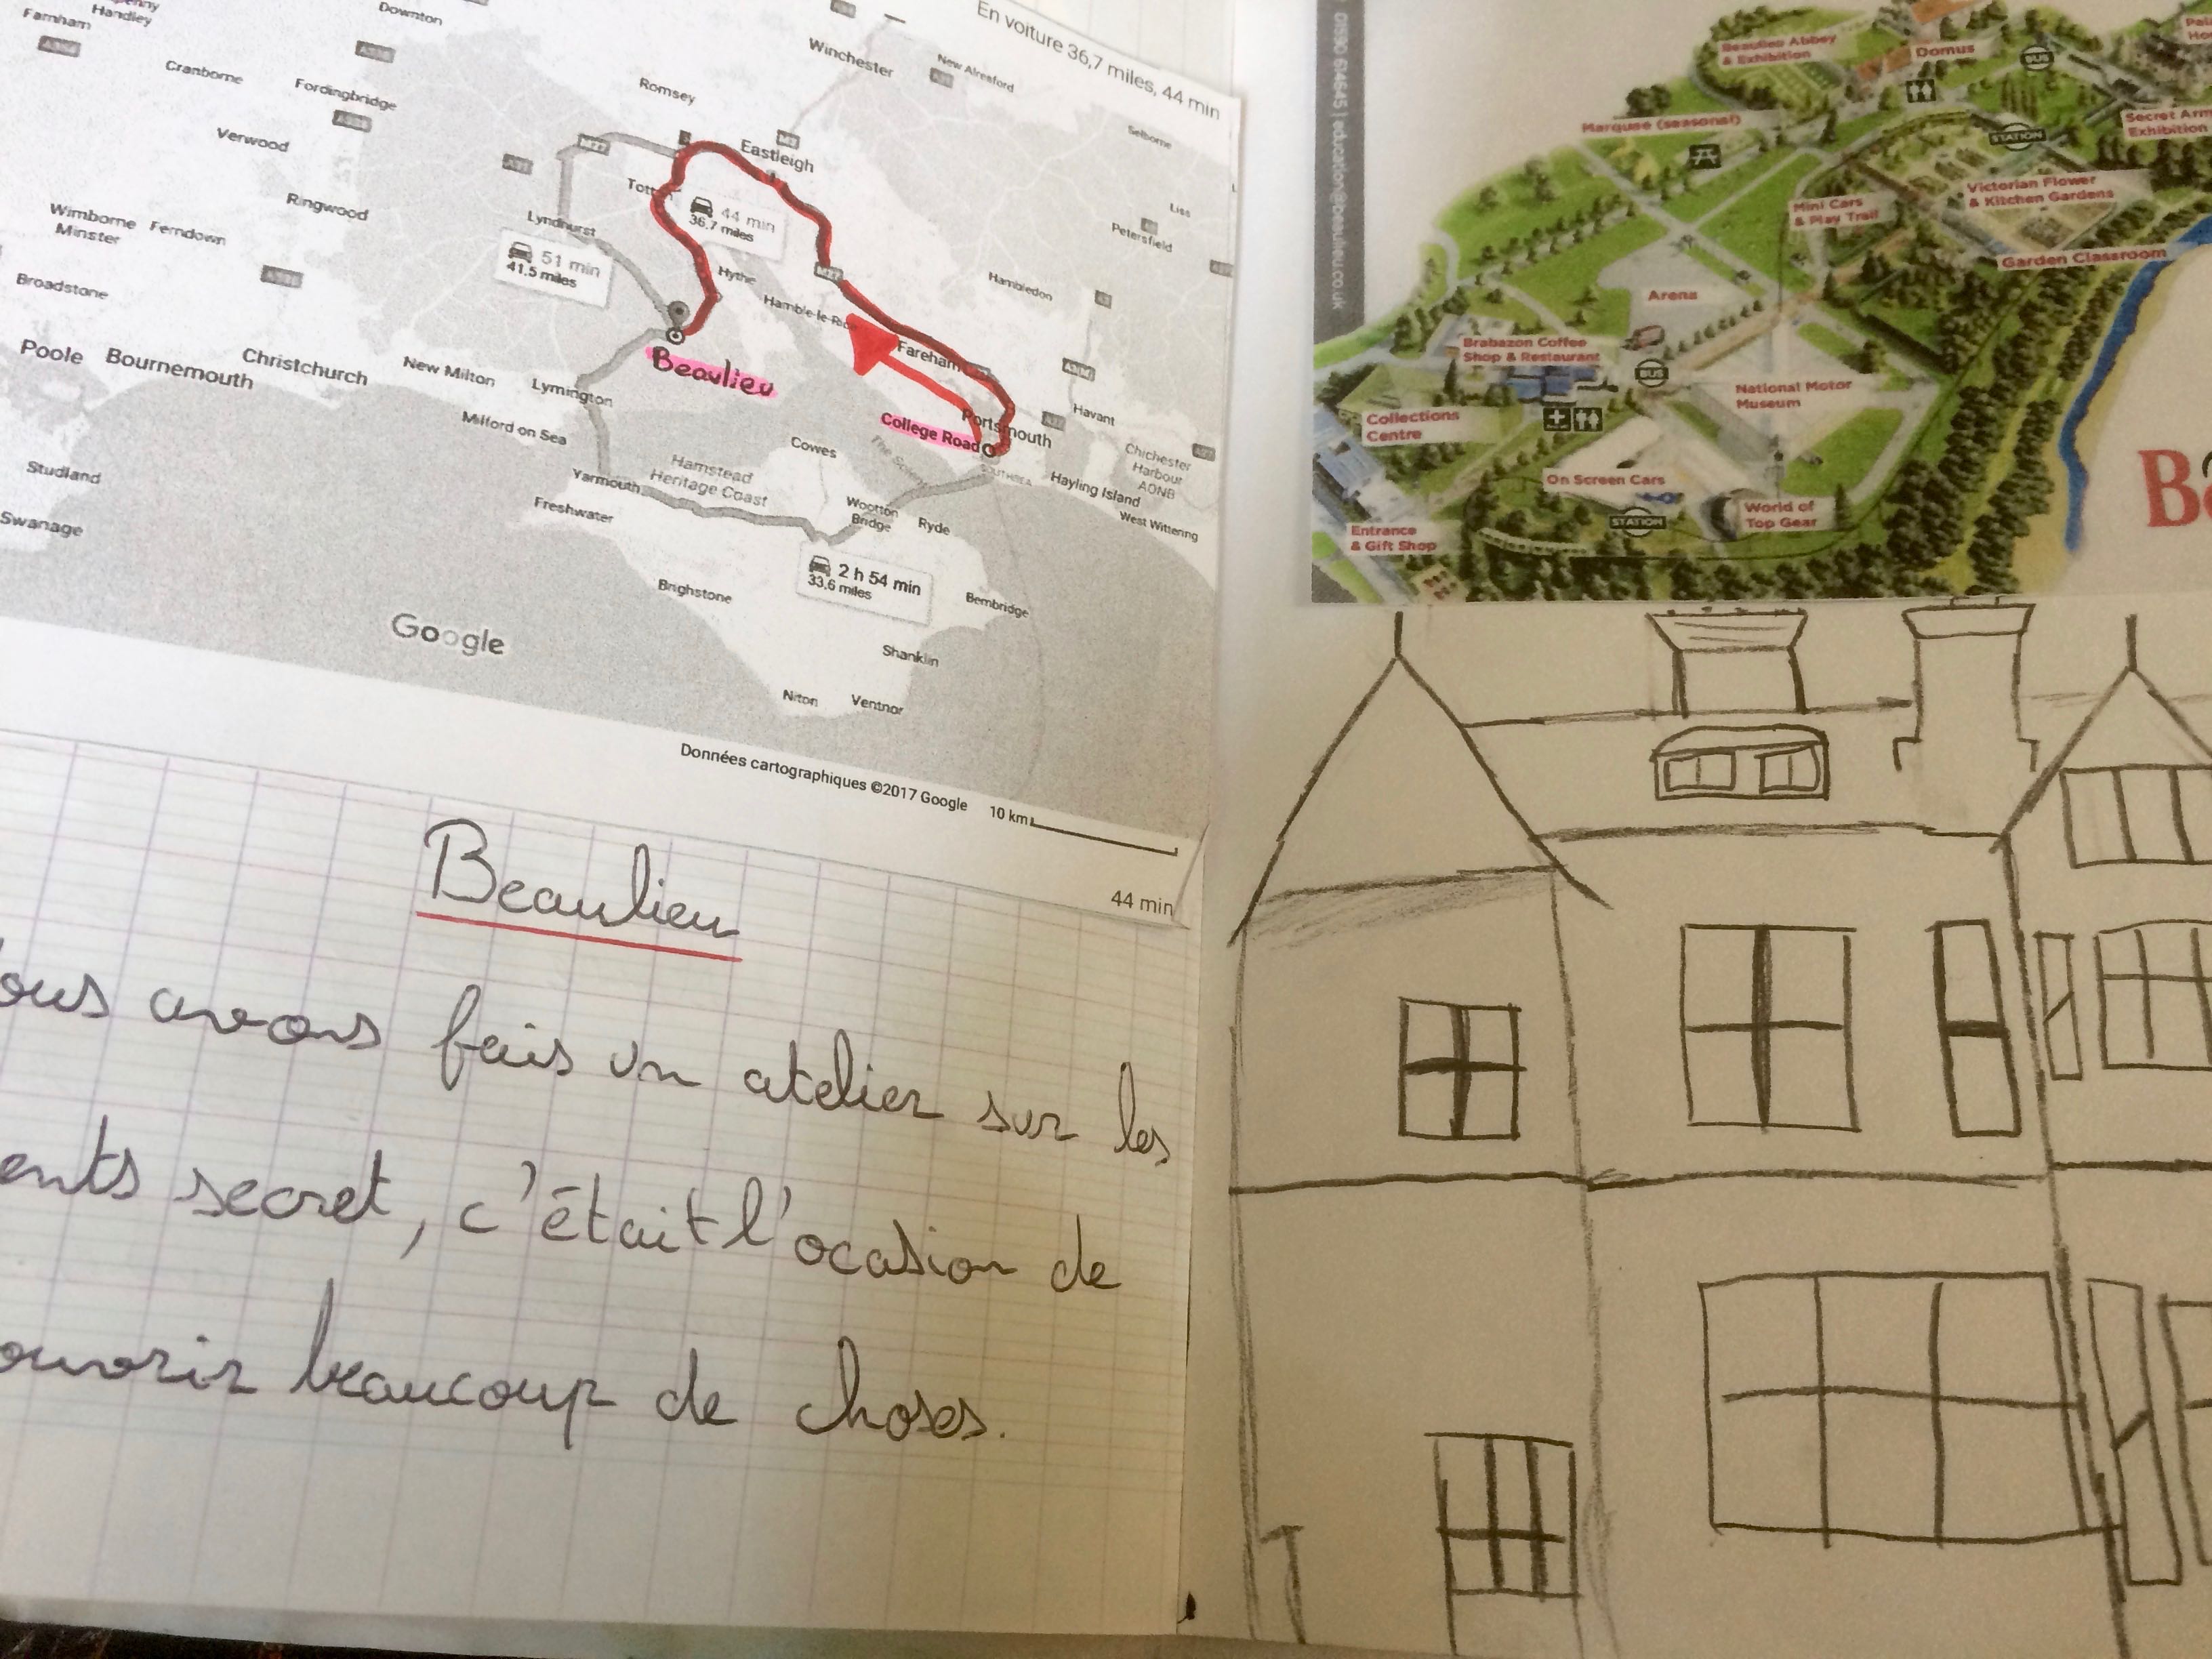 En voiture 36,7 miles, 44 min
Handley
Downton
Farnham
Winchester
New Alresford
Cranborne
Fordingbridge
Romsey
Selborne
Verwood
M3
Eastleigh
M27
A31
Tott
Liss
Wimborne
Minster
Ferndown
Ringwood
Lyndhurst
44 min
36,7 miles
Petersfield
51 min
41,5 miles
Hythe
M27
Hambledon
Broadstone
Hamble-le-Rice
Fareham
Poole
Bournemouth
Christchurch
New Milton
Lymington
Beaulieu
Havant
Milford on Sea
College Road
Portsmouth
Cowes
The Solent
SOUTHSEA
Hayling Island
Chichester
Harbour
AONB
West Wittering
Studland
Hamstead
Heritage Coast
Yarmouth
Freshwater
Wootton
Bridge
Ryde
Swanage
2 h 54 min
33,6 miles
Brighstone
Bembridge
Google
Shanklin
Niton
Ventnor
Données cartographiques ©2017 Google 10 km
44 min
Beaulieu
ous avons fais un atelier sur les
ents secret, c'était l'ocasion de
ouvrir beaucoup de choses.
01590 614645 | education@beaulieu.co.uk
Beaulieu Abbey
& Exhibition
Domus
BUS
Marquee (seasonal)
STATION
Secret Arm
Exhibition
Mini Cars
& Play Trail
Victorian Flower
& Kitchen Gardens
Garden Classroom
Arena
Brabazon Coffee
Shop & Restaurant
BUS
National Motor
Museum
Collections
Centre
On Screen Cars
STATION
World of
Top Gear
Entrance
& Gift Shop